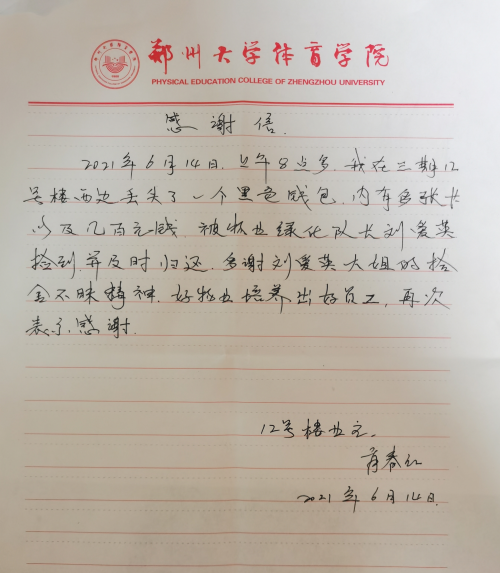 郑州大学体育学院
PHYSICAL EDUCATION COLLEGE OF ZHENGZHOU UNIVERSITY
感谢信
2021年6月14日,上午8点多,我在三期12
号楼西边丢失了一个黑色钱包,内有多张卡
以及几百元钱,被物业绿化队长刘爱英
捡到并及时归还,多谢刘爱英大姐的拾
金不昧精神,好物业培养出好员工,再次
表示感谢.
12号楼业主,
春红
2021年6月14日.